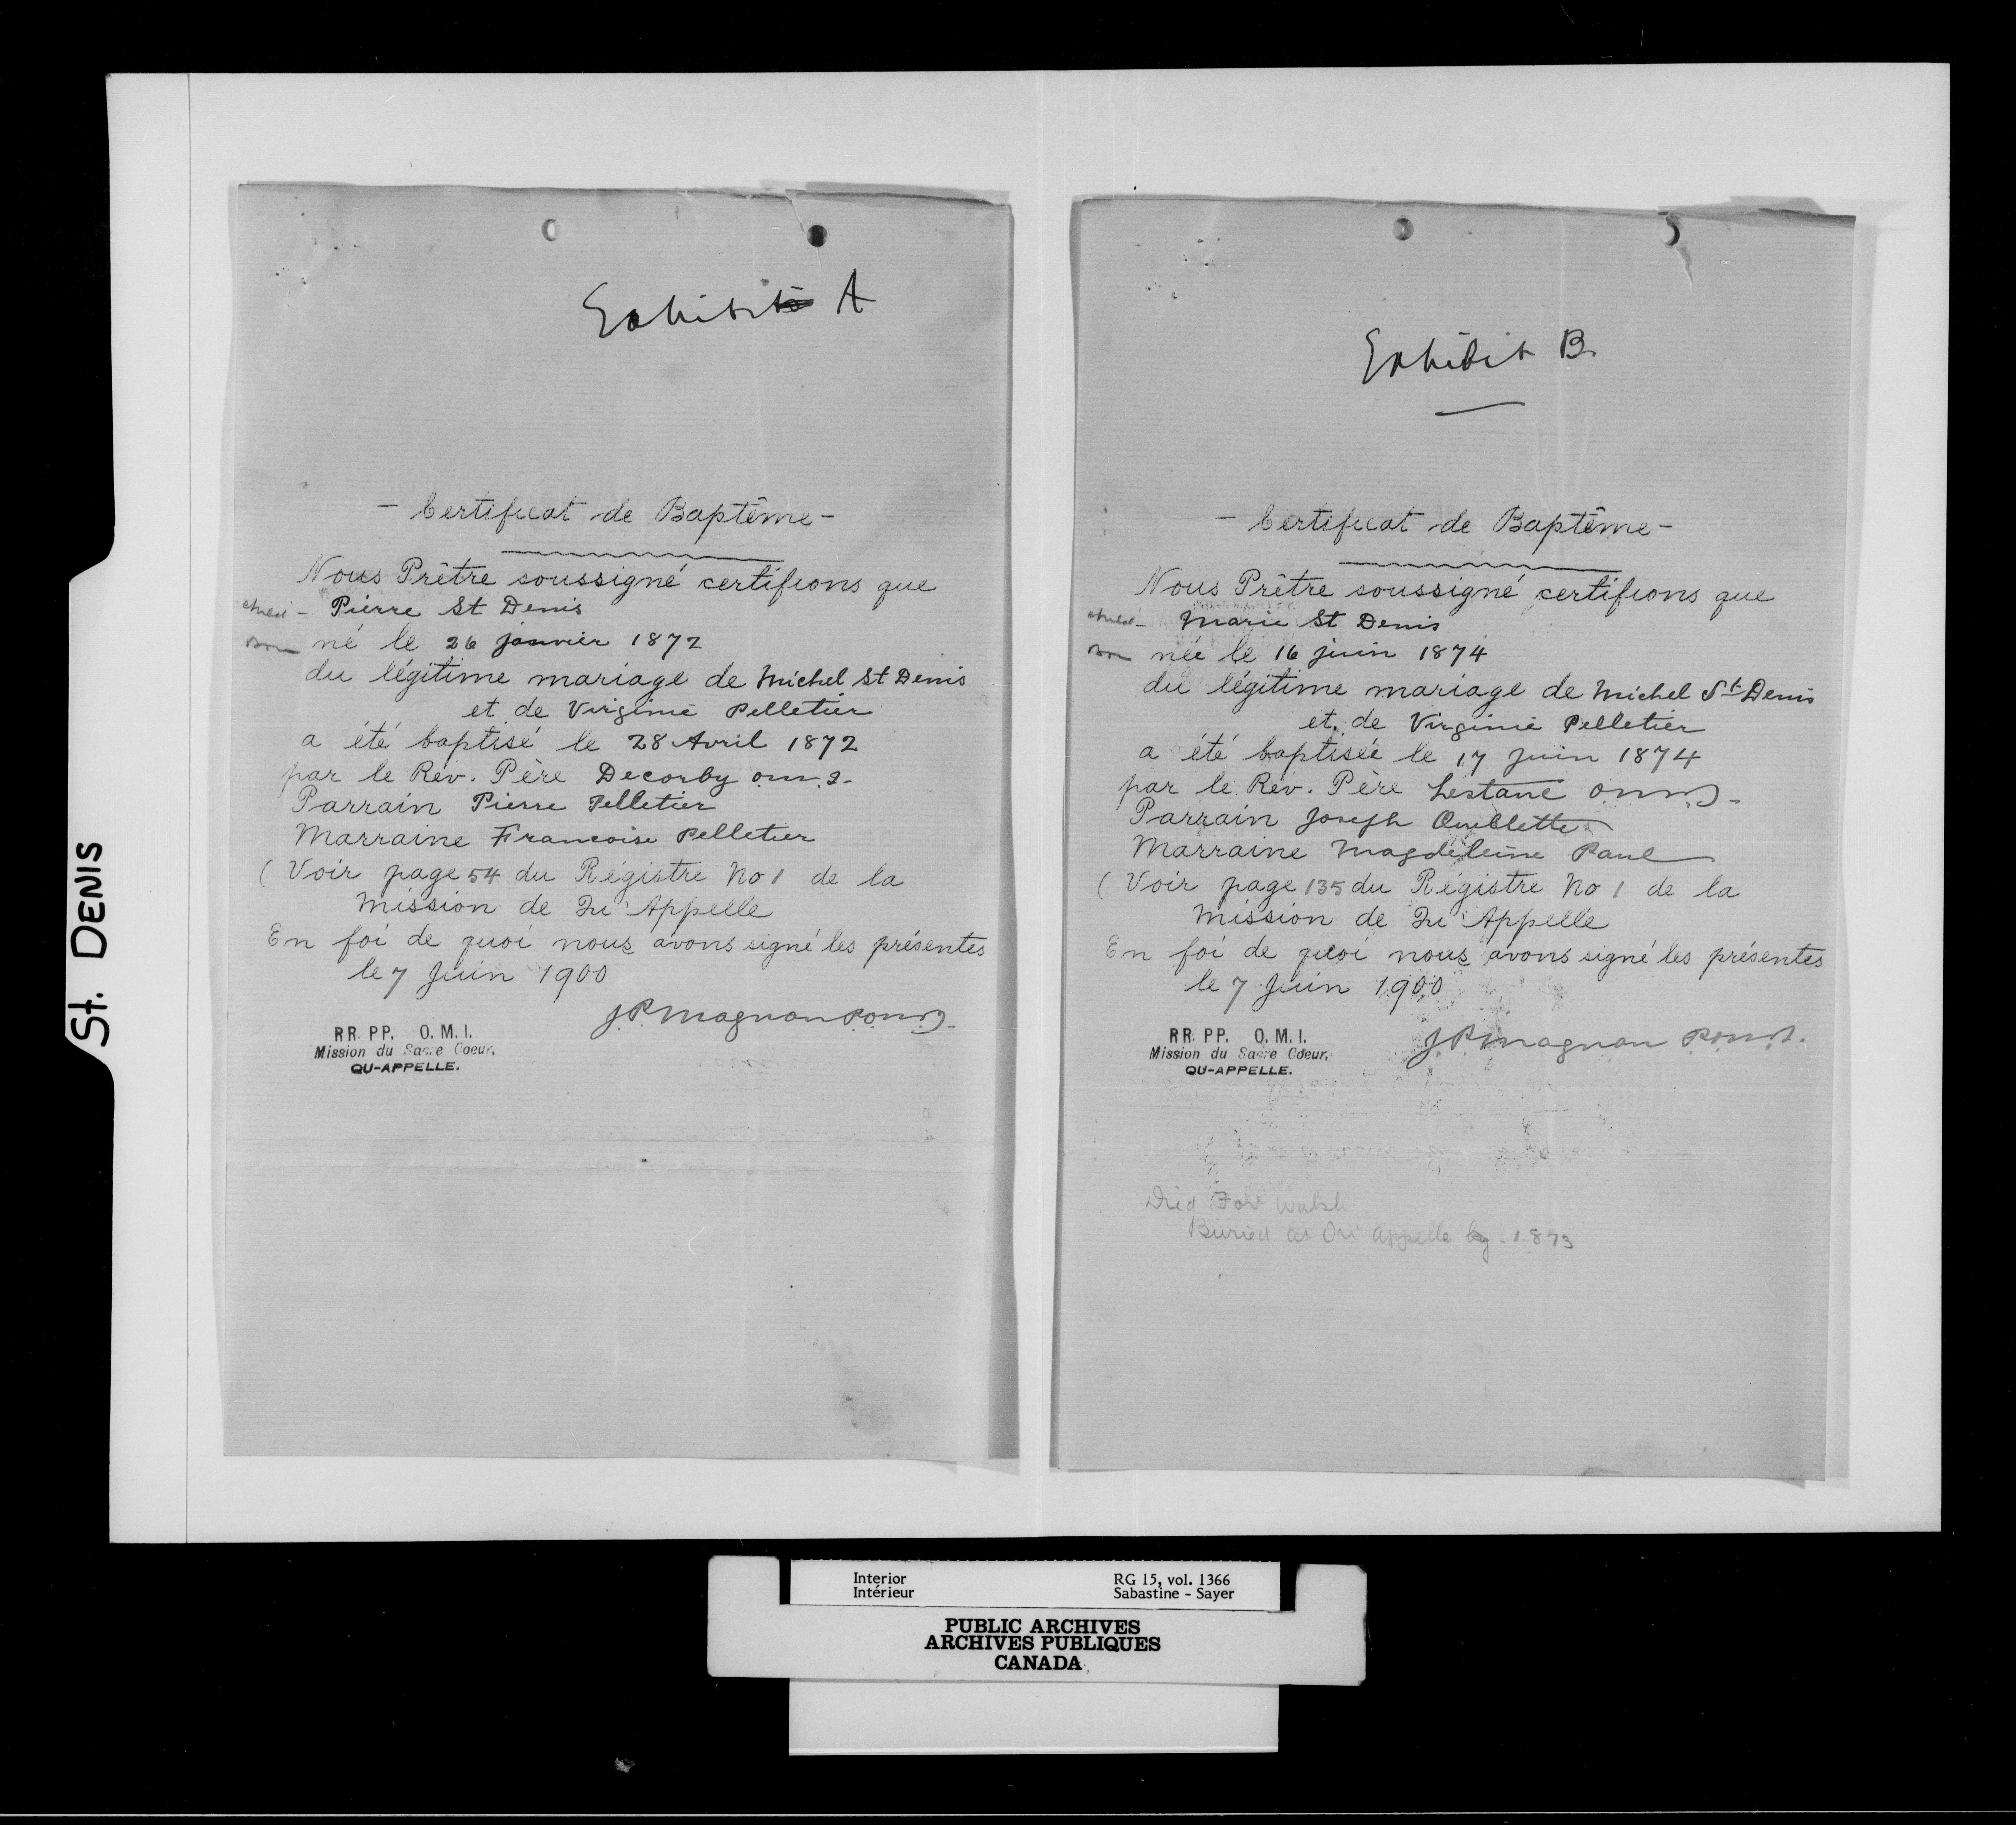 St. DENIS
Exhibit A
- Certificat de Baptême -
Nous Prêtre soussigné certifions que
child - Pierre St Denis
Born né le 26 janvier 1872
du légitime mariage de Michel St Denis
et de Virginie Pelletier
a été baptisé le 28 Avril 1872
par le Rév. Père Decorby o.m.i.
Parrain Pierre Pelletier
Marraine Francoise Pelletier
( Voir page 54 du Régistre No 1 de la
Mission de Qu'Appelle
En foi de quoi nous avons signé les présentes
le 7 Juin 1900
J.P. Magnan P.O.M.I.
RR. PP. O. M. I.
Mission du Sacre Coeur,
QU-APPELLE.
Exhibit B.
- Certificat de Baptême -
Nous Prêtre soussigné certifions que
child - Marie St Denis
Born née le 16 juin 1874
du légitime mariage de Michel St Denis
et de Virginie Pelletier
a été baptisée le 17 Juin 1874
par le Rév. Père Lestanc O.M.I.
Parrain Joseph Ouellette
Marraine Magdeleine Paul
( Voir page 135 du Régistre No 1 de la
Mission de Qu'Appelle
En foi de quoi nous avons signé les présentes
le 7 Juin 1900
J.P. Magnan P.O.M.I.
RR. PP. O. M. I.
Mission du Sacre Coeur,
QU-APPELLE.
Died Fort Walsh
Buried at Qu'Appelle
Interior
Intérieur
RG 15, vol. 1366
Sabastine - Sayer
PUBLIC ARCHIVES
ARCHIVES PUBLIQUES
CANADA